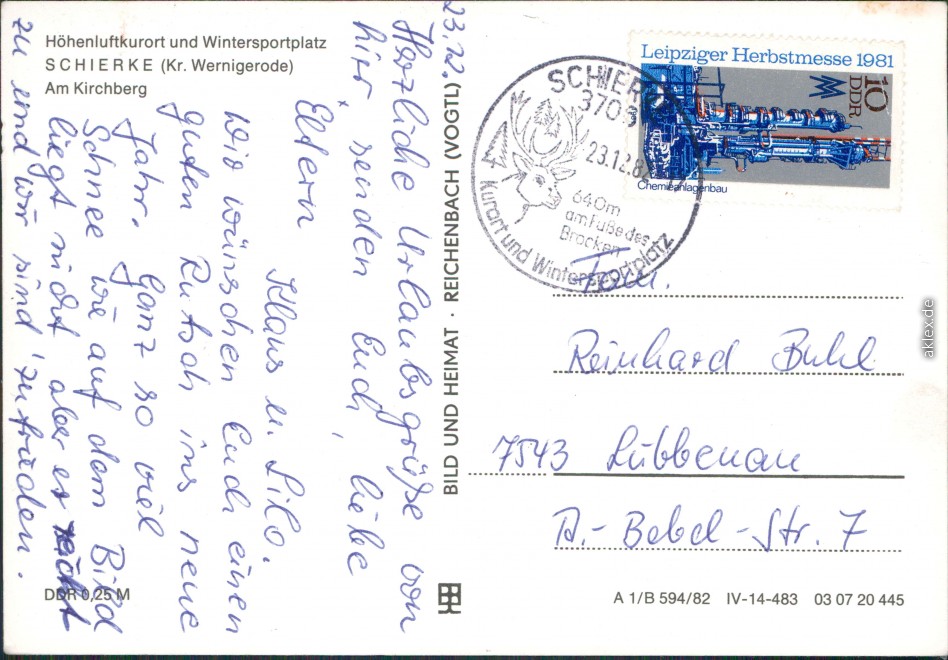 Höhenluftkurort und Wintersportplatz
SCHIERKE (Kr. Wernigerode)
Am Kirchberg
23.12.
Herzliche Urlaubsgrüße von
hier senden Euch, liebe
Eltern
Klaus u. Lilo.
Wir wünschen Euch einen
guten Rutsch ins neue
Jahr. Ganz so viel
Schnee wie auf dem Bild
liegt nicht aber es reicht
zu und wir sind zufrieden.
DDR 0,25 M
BILD UND HEIMAT · REICHENBACH (VOGTL)
Leipziger Herbstmesse 1981
10
DDR
Chemieanlagenbau
SCHIERKE
3706
23.12.82
640m
am Fuße des
Brocken
Kurort und Wintersportplatz
Fam.
Reinhard Buhl
7543 Lübbenau
A.-Bebel-Str. 7
A 1/B 594/82 IV-14-483 03 07 20 445
aklex.de